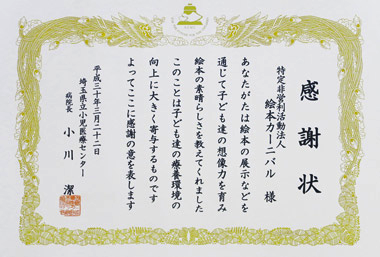 感謝状
特定非営利活動法人
絵本カーニバル 様
あなたがたは絵本の展示などを
通じて子ども達の想像力を育み
絵本の素晴らしさを教えてくれました
このことは子ども達の療養環境の
向上に大きく寄与するものです
よってここに感謝の意を表します
平成三十年三月二十二日
埼玉県立小児医療センター
病院長 小川 潔